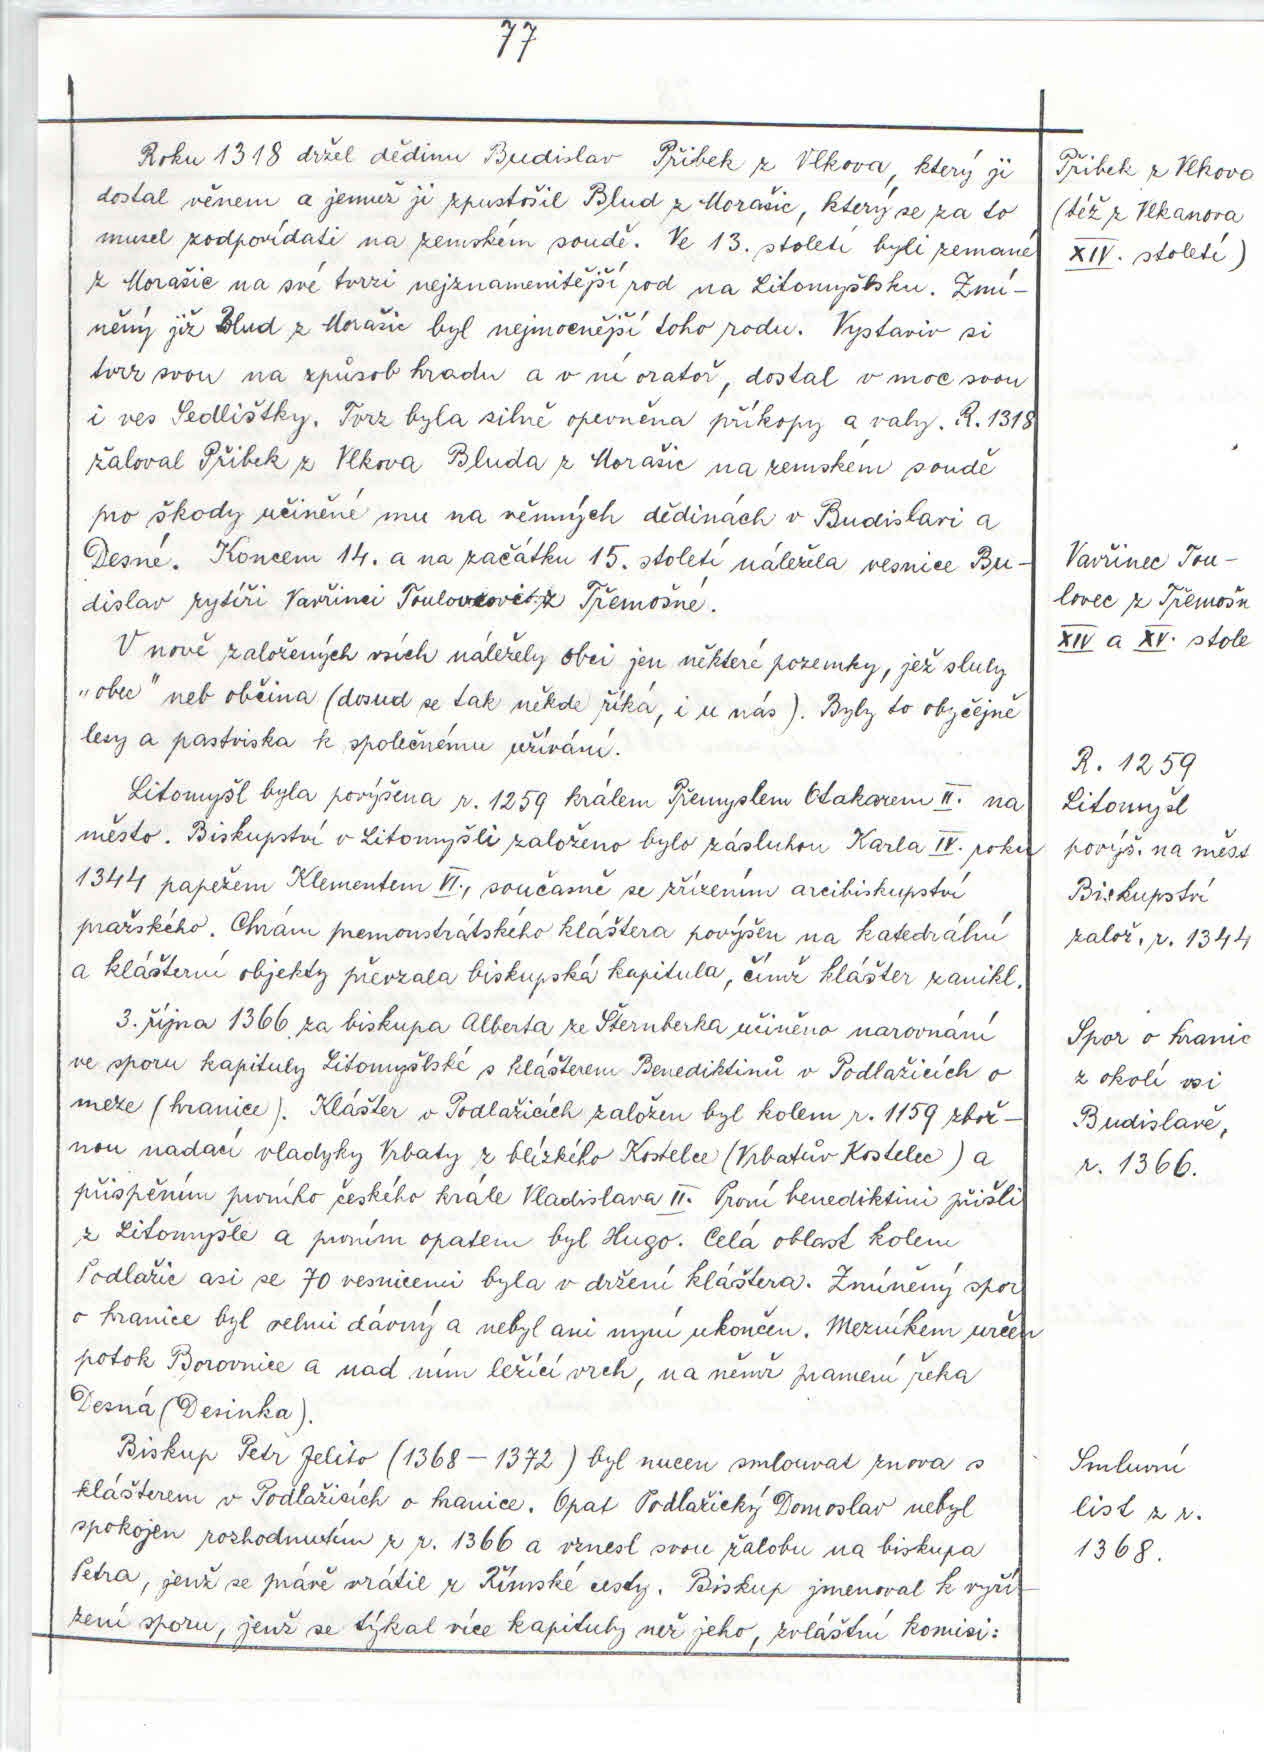 77
Roku 1318 držel dědinu Budislav Přibek z Vlkova, který ji
dostal věnem a jemuž ji zpustošil Blud z Morašic, který se za to
musel zodpovídati na zemském soudě. Ve 13. století byli zemané
z Morašic na své tvrzi nejznamenitější rod na Litomyšlsku. Zmí-
něný již Blud z Morašic byl nejmocnější toho rodu. Vystaviv si
tvrz svou na způsob hradu a v ní oratoř, dostal v moc svou
i ves Sedlištky. Tvrz byla silně opevněna příkopy a valy. R. 1318
žaloval Přibek z Vlkova Bluda z Morašic na zemském soudě
pro škody učiněné mu na věnných dědinách v Budislavi a
Desné. Koncem 14. a na začátku 15. století náležela vesnice Bu-
dislav rytíři Vavřinci Toulovcovi z Třemošné.
V nově založených vsích náležely obci jen některé pozemky, jež sluly
"obec" neb občina (dosud se tak někde říká, i u nás). Byly to obyčejně
lesy a pastviska k společnému užívání.
Litomyšl byla povýšena r. 1259 králem Přemyslem Otakarem II. na
město. Biskupství v Litomyšli založeno bylo zásluhou Karla IV. roku
1344 papežem Klementem VI., současně se zřízením arcibiskupství
pražského. Chrám premonstrátského kláštera povýšen na katedrální
a klášterní objekty převzala biskupská kapitula, čímž klášter zanikl.
3. října 1366 za biskupa Alberta ze Šternberka učiněno narovnání
ve sporu kapituly Litomyšlské s klášterem Benediktinů v Podlažicích o
meze (hranice). Klášter v Podlažicích založen byl kolem r. 1159 zbož-
nou nadací vladyky Vrbaty z blízkého Kostelce (Vrbatův Kostelec) a
přispěním prvního českého krále Vladislava II. První benediktini přišli
z Litomyšle a prvním opatem byl Hugo. Celá oblast kolem
Podlažic asi se 70 vesnicemi byla v držení kláštera. Zmíněný spor
o hranice byl velmi dávný a nebyl ani nyní ukončen. Mezníkem určen
potok Borovnice a nad ním ležící vrch, na němž pramení řeka
Desná (Desinka).
Biskup Petr Jelito (1368 - 1372) byl nucen smlouvat znova s
klášterem v Podlažicích o hranice. Opat Podlažický Domoslav nebyl
spokojen rozhodnutím z r. 1366 a vznesl svou žalobu na biskupa
Petra, jenž se právě vrátil z Římské cesty. Biskup jmenoval k vyří-
zení sporu, jenž se týkal více kapituly než jeho, zvláštní komisi:
Přibek z Vlkova
(též z Vlkanova
XIV. století)
Vavřinec Tou-
lovec z Třemošn
XIV a XV. stole
R. 1259
Litomyšl
povýš. na měst
Biskupství
založ. r. 1344
Spor o hranic
z okolí vsi
Budislavě,
r. 1366.
Smluvní
list z r.
1368.